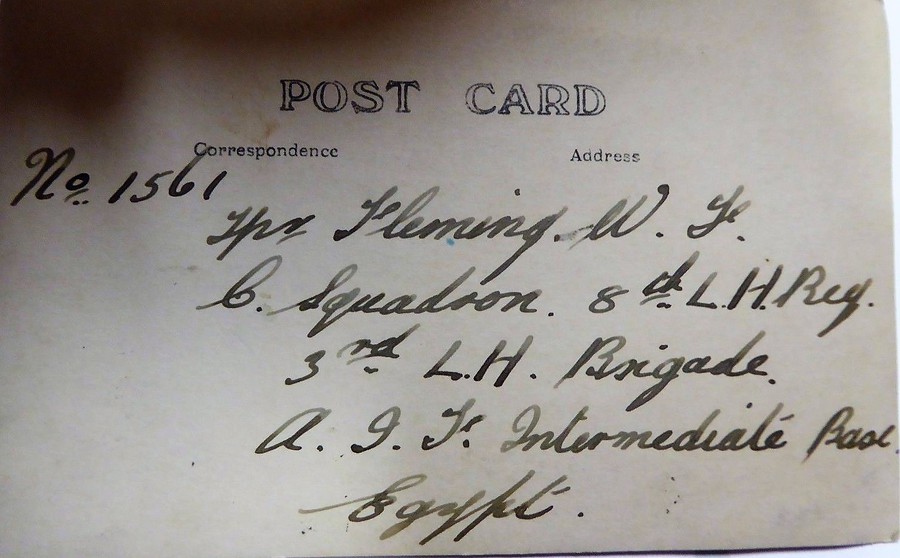 POST CARD
Correspondence Address
No. 1561
Tpr Fleming. W. F.
C. Squadron. 8th L.H. Reg.
3rd L.H. Brigade.
A. I. F. Intermediate Base
Egypt.